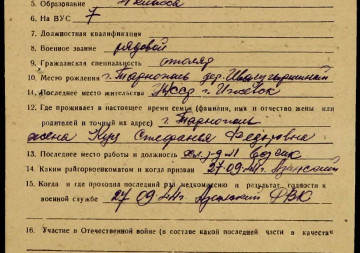 5. Образование
6. На ВУС 7
7. Должностная квалификация
8. Военное звание рядовой
9. Гражданская специальность столяр
10. Место рождения г. Тарнополь дер.
11. Последнее место жительства г. Ижевск
12. Где проживает в настоящее время семья (фамилия, имя и отчество жены или
родителей и точный их адрес) г. Тарнополь
жена Куц Стефанья Федоровна
13. Последнее место работы и должность
14. Каким райгорвоенкоматом и когда призван 27.09.44г.
15. Когда и где проходил последний раз медкомиссию и результат годности к
военной службе 27.09.44г. РВК
16. Участие в Отечественной войне (в составе какой последней части в качестве